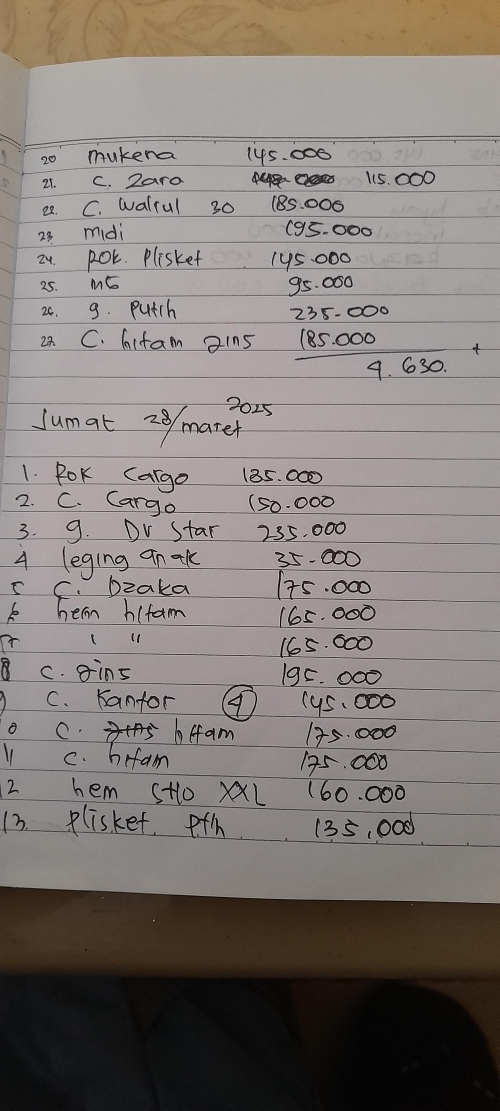 20 mukena 145.000
21. C. Zara 115.000
22. C. Walrul 30 185.000
23. midi 195.000
24. Rok. Plisket 145.000
25. MG 95.000
26. g. Putih 235.000
27. C. hitam Jins 185.000 +
4.630.
Jumat 28/maret 2025
1. Rok Cargo 185.000
2. C. Cargo 150.000
3. g. Dv Star 235.000
4 leging anak 35.000
5 C. Dzaka 175.000
6 hem hitam 165.000
7 " " 165.000
8 C. Jins 195.000
9 C. Kantor 4 145.000
10 C. Jins hitam 175.000
11 C. hitam 175.000
12 hem Sho XXL 160.000
13. Plisket Pth 135.000